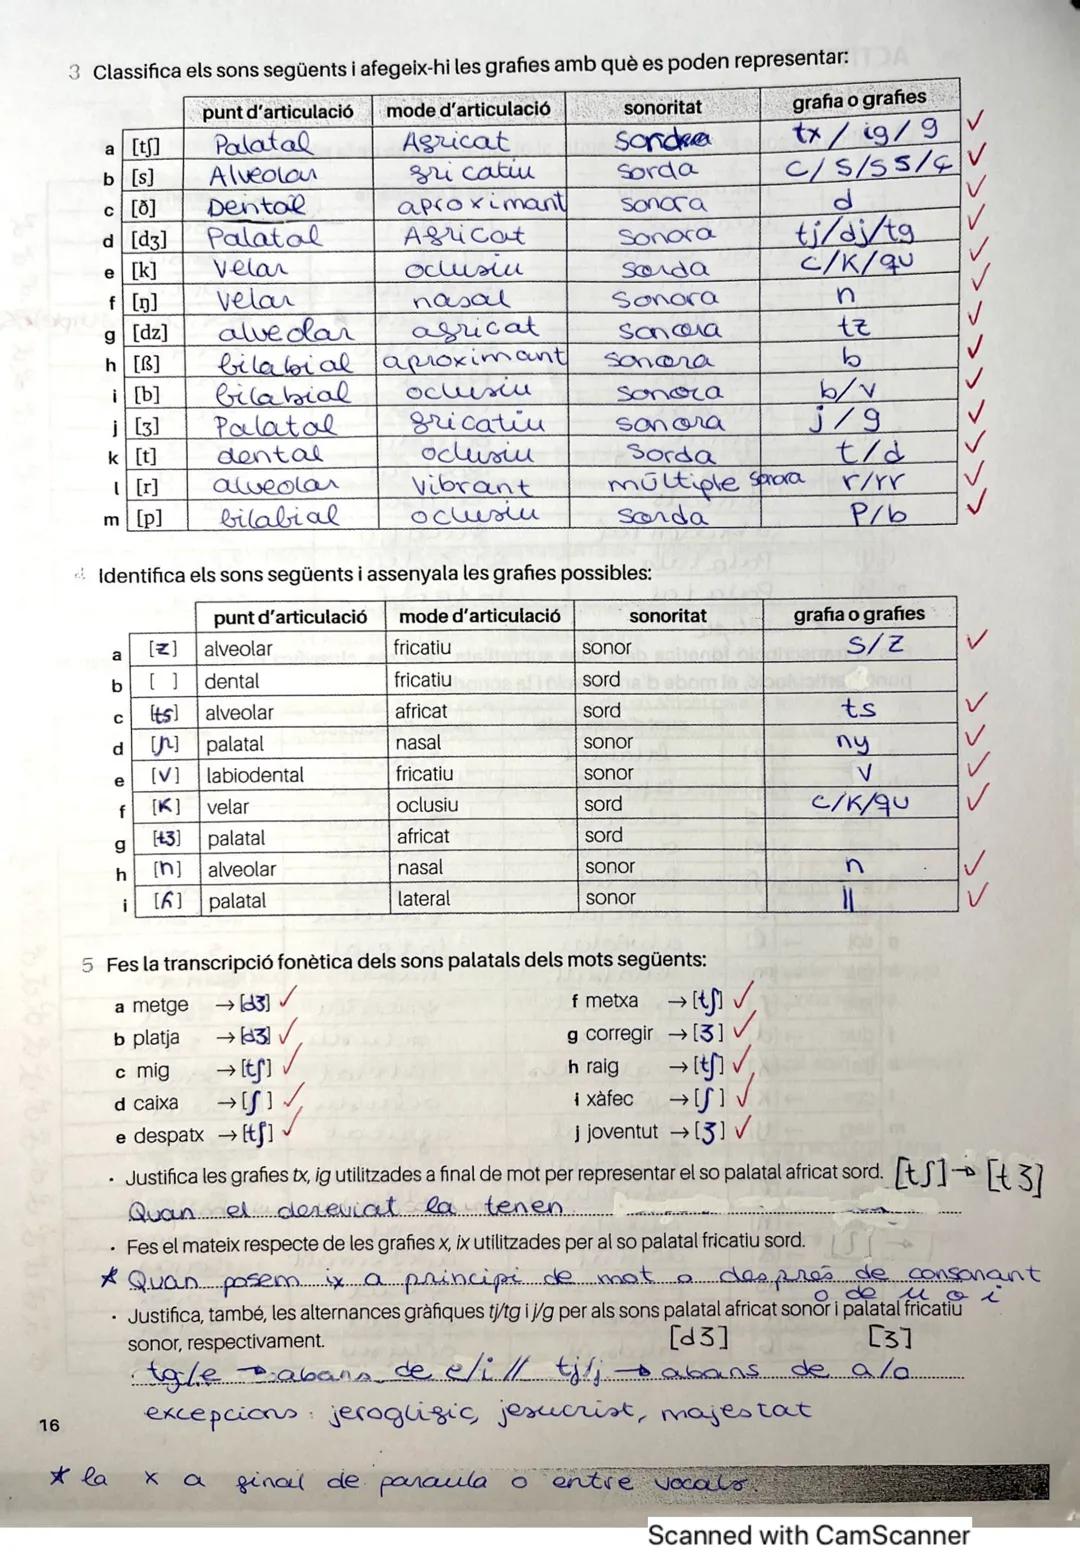 3 Classifica els sons següents i afegeix-hi les grafies amb què es poden representar:
punt d'articulació mode d'articulació sonoritat grafia o grafies
a [tʃ] Palatal Africat sorda tx / ig / g
b [s] Alveolar fricatiu sorda c/s/ss/ç
c [ð] Dental aproximant sonora d
d [dʒ] Palatal Africat Sonora tj/dj/tg
e [k] velar oclusiu sorda c/K/qu
f [ŋ] velar nasal Sonora n
g [dz] alveolar africat sonora tz
h [ß] bilabial aproximant sonora b
i [b] bilabial oclusiu sonora b/v
j [ʒ] Palatal fricatiu sonora j/g
k [t] dental oclusiu Sorda t/d
l [r] alveolar Vibrant múltiple sonora r/rr
m [p] bilabial oclusiu sorda P/b
4 Identifica els sons següents i assenyala les grafies possibles:
punt d'articulació mode d'articulació sonoritat grafia o grafies
a [z] alveolar fricatiu sonor S/Z
b [ ] dental fricatiu sord
c [ts] alveolar africat sord ts
d [ɲ] palatal nasal sonor ny
e [V] labiodental fricatiu sonor V
f [K] velar oclusiu sord c/K/qu
g [tʒ] palatal africat sord
h [n] alveolar nasal sonor n
i [ʎ] palatal lateral sonor ll
5 Fes la transcripció fonètica dels sons palatals dels mots següents:
a metge → [dʒ] f metxa → [tʃ]
b platja → [dʒ] g corregir → [ʒ]
c mig → [tʃ] h raig → [tʃ]
d caixa → [ʃ] i xàfec → [ʃ]
e despatx → [tʃ] j joventut → [ʒ]
· Justifica les grafies tx, ig utilitzades a final de mot per representar el so palatal africat sord. [tʃ] → [tʒ]
Quan el derivat la tenen
· Fes el mateix respecte de les grafies x, ix utilitzades per al so palatal fricatiu sord. [ʃ]
* Quan posem ix a principi de mot o després de consonant
o de u o i
· Justifica, també, les alternances gràfiques tj/tg i j/g per als sons palatal africat sonor i palatal fricatiu
sonor, respectivament. [dʒ] [ʒ]
tg/e → abans de e/i // tj/j → abans de a/o
excepcions: jeroglífic, jesucrist, majestat
16
* la x a final de paraula o entre vocals.
Scanned with CamScanner